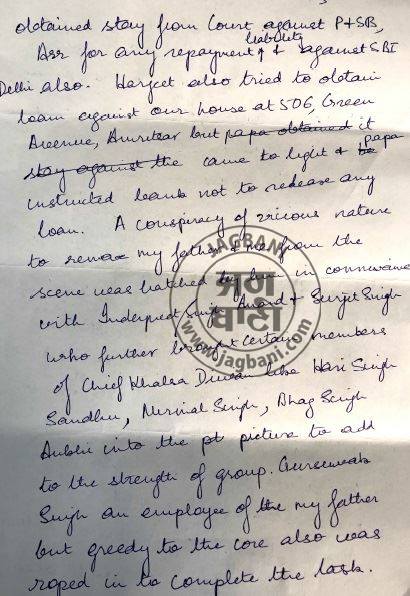 obtained stay from Court against P&SB,
Asr for any repayment & liability against SBI
Delhi also. Harjeet also tried to obtain
loan against our house at 506, Green
Avenue, Amritsar but papa obtained it
stay against the came to light & papa
instructed bank not to release any
loan. A conspiracy of vicious nature
to remove my father & me from the
scene was hatched by him in connivance
with Inderpreet Singh Anand & Surjit Singh
who further brought certain members
of Chief Khalsa Diwan like Hari Singh
Sandhu, Nirmal Singh, Bhag Singh
into the pt picture to add
to the strength of group. Gursewak
Singh an employee of the my father
but greedy to the core also was
roped in to complete the task.
JAGBANI
ਜਗ
ਬਾਣੀ
www.jagbani.com